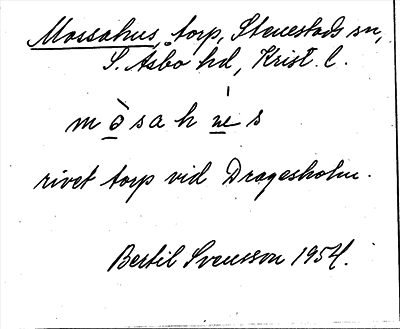 Mossahus, torp, Stenestads sn,
S. Åsbo hd, Krist. l.
m ò s a h u s
rivet torp vid Dragesholm.
Bertil Svensson 1954.